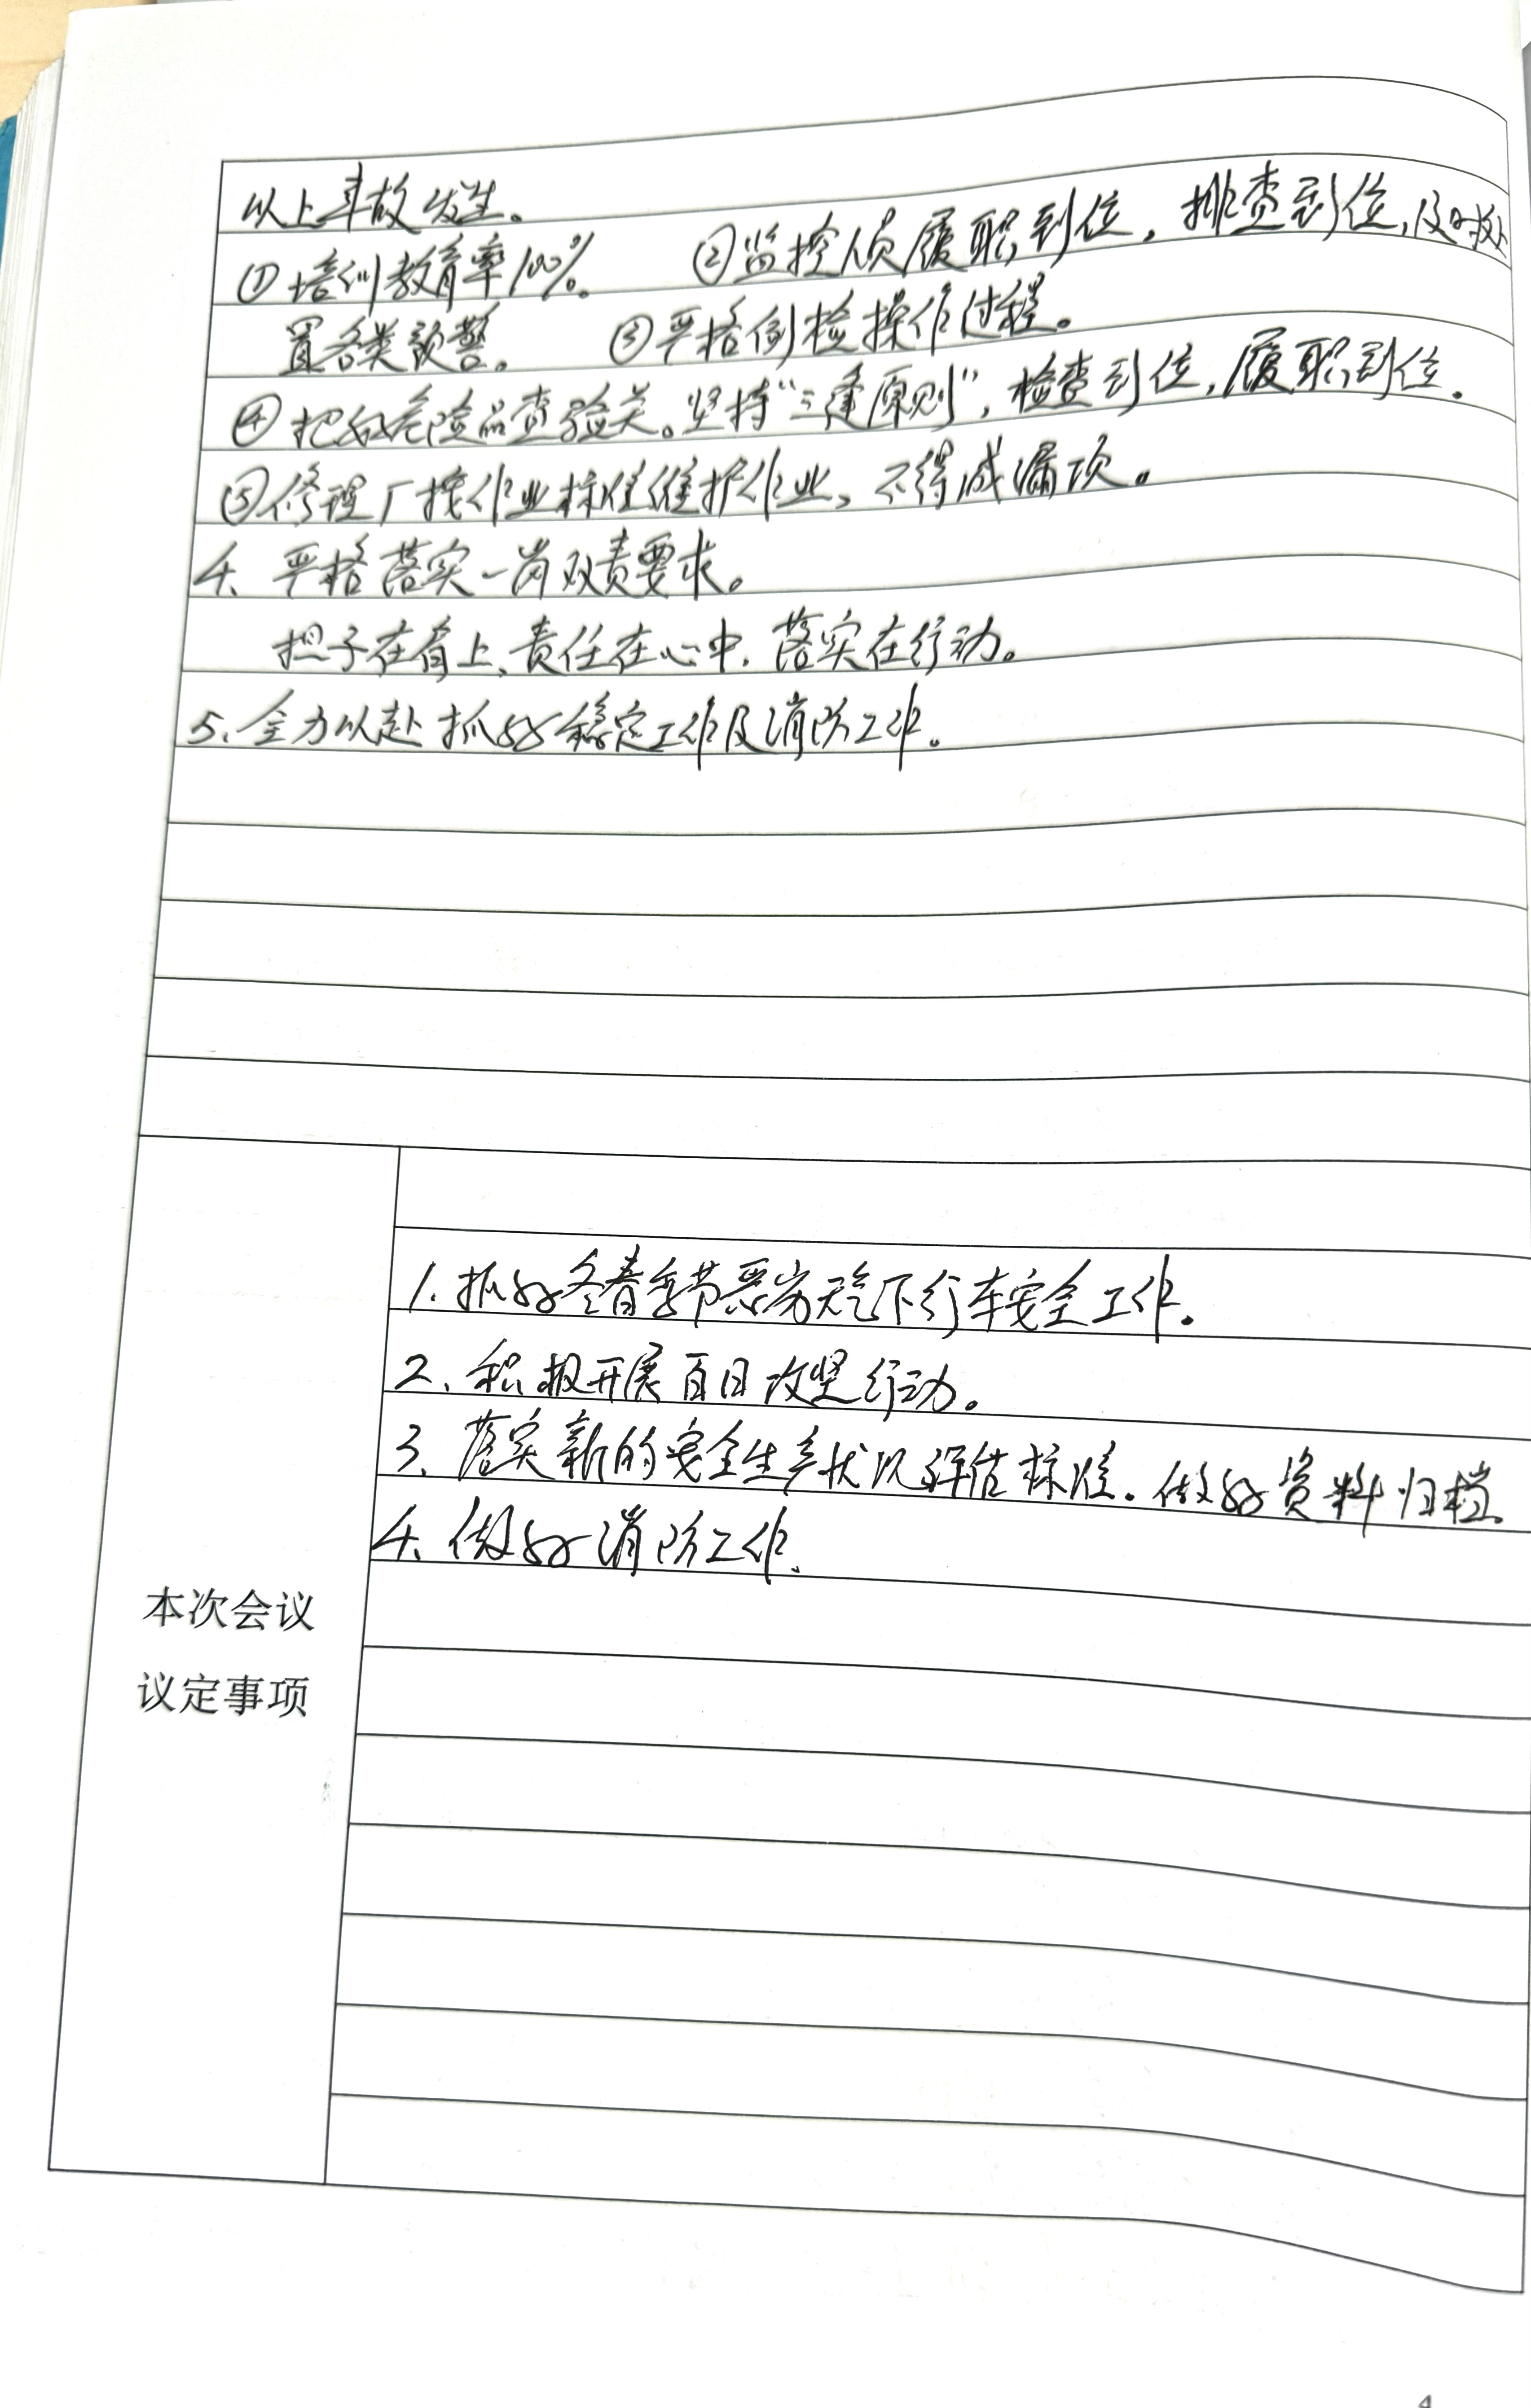 以上事故发生。
①培训教育率100%。 ②监控人员履职到位，排查到位，及时处
置各类预警。 ③严格例检操作过程。
④把好危险品查验关。坚持“三逢原则”，检查到位，履职到位。
⑤修理厂按作业标准维护作业，不得减漏项。
4、严格落实一岗双责要求。
担子在肩上、责任在心中，落实在行动。
5、全力以赴抓好稳定工作及消防工作。
1、抓好冬春季节恶劣天气下行车安全工作。
2、积极开展百日攻坚行动。
3、落实新的安全生产状况评估标准。做好资料归档。
4、做好消防工作、
本次会议
议定事项
4